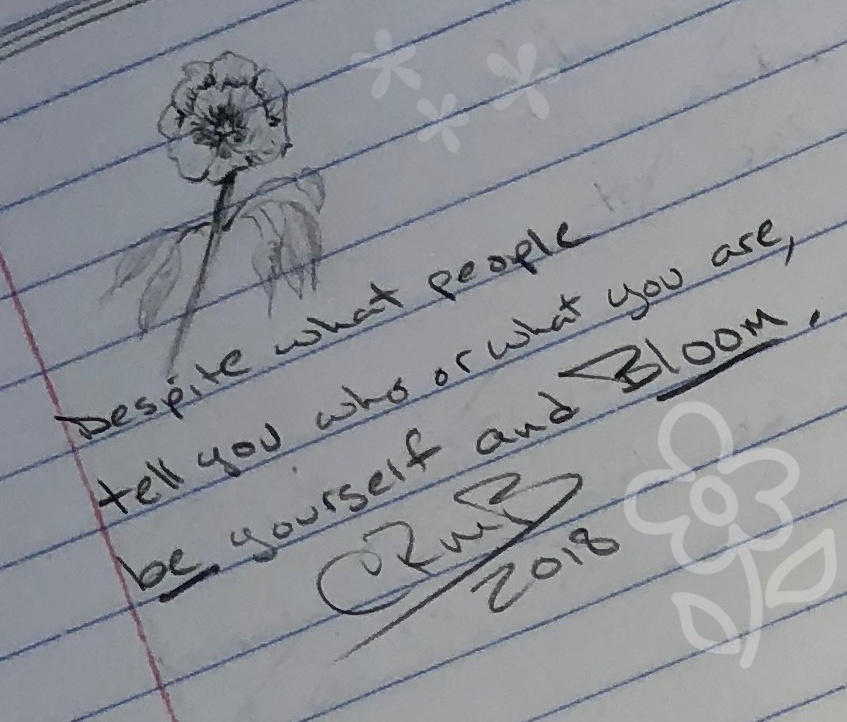 Despite what people
tell you who or what you are,
be yourself and Bloom.
2018